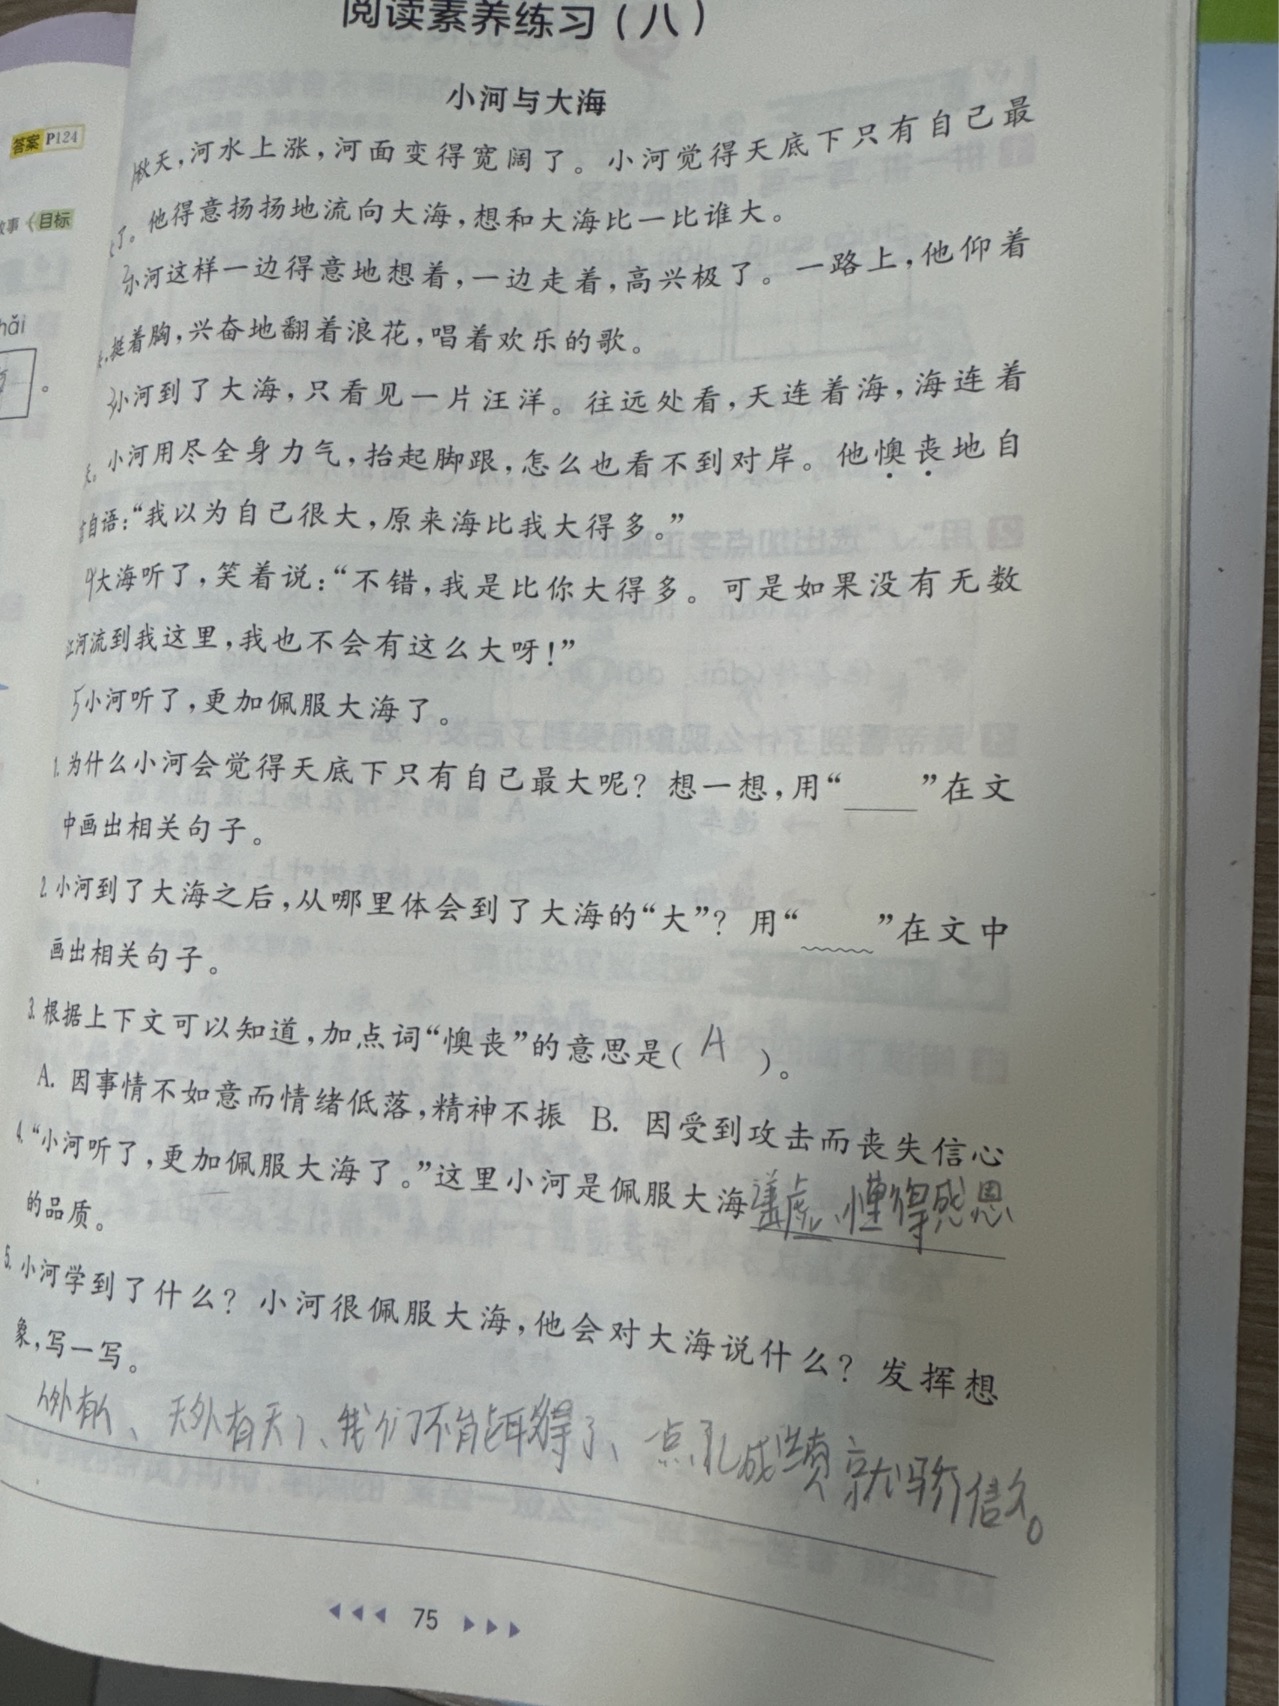 阅读素养练习（八）
小河与大海
答案 P124
秋天，河水上涨，河面变得宽阔了。小河觉得天底下只有自己最
了。他得意扬扬地流向大海，想和大海比一比谁大。
故事 目标
2小河这样一边得意地想着，一边走着，高兴极了。一路上，他仰着
hǎi
挺着胸，兴奋地翻着浪花，唱着欢乐的歌。
3小河到了大海，只看见一片汪洋。往远处看，天连着海，海连着
天。小河用尽全身力气，抬起脚跟，怎么也看不到对岸。他懊丧地自
言自语：“我以为自己很大，原来海比我大得多。”
4大海听了，笑着说：“不错，我是比你大得多。可是如果没有无数
江河流到我这里，我也不会有这么大呀！”
5小河听了，更加佩服大海了。
1.为什么小河会觉得天底下只有自己最大呢？想一想，用“____”在文
中画出相关句子。
2.小河到了大海之后，从哪里体会到了大海的“大”？用“﹏﹏”在文中
画出相关句子。
3.根据上下文可以知道，加点词“懊丧”的意思是（ A ）。
A. 因事情不如意而情绪低落，精神不振 B. 因受到攻击而丧失信心
4.“小河听了，更加佩服大海了。”这里小河是佩服大海谦虚、懂得感恩
的品质。
5.小河学到了什么？小河很佩服大海，他会对大海说什么？发挥想
象，写一写。
人外有人、天外有天、我们不能取得了、一点儿成绩就骄
75